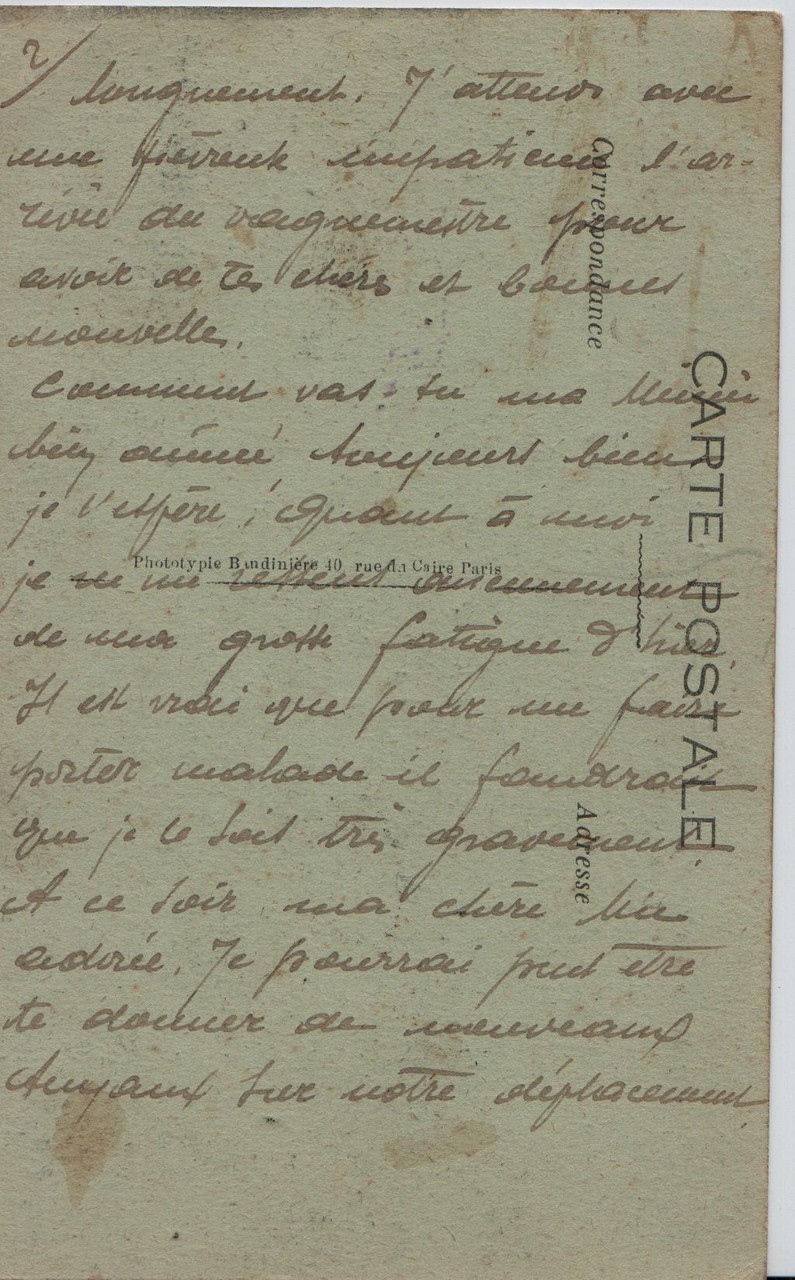 2/
longuement. J'attends avec
une fiévreuse impatience l'ar-
rivée du vaguemestre pour
avoir de tes chères et bonnes
nouvelles.
Comment vas-tu ma
bien aimée toujours bien
je l'espère, Quant à moi
je ne me ressens aucunement
de ma grosse fatigue d'hier.
Il est vrai que pour me faire
porter malade il faudrait
que je le soit très gravement.
A ce soir ma chère
adorée. Je pourrai peut être
te donner de nouveaux
tuyaux sur notre déplacement
Correspondance
CARTE POSTALE
Adresse
Phototypie Baudinière 40, rue du Caire Paris